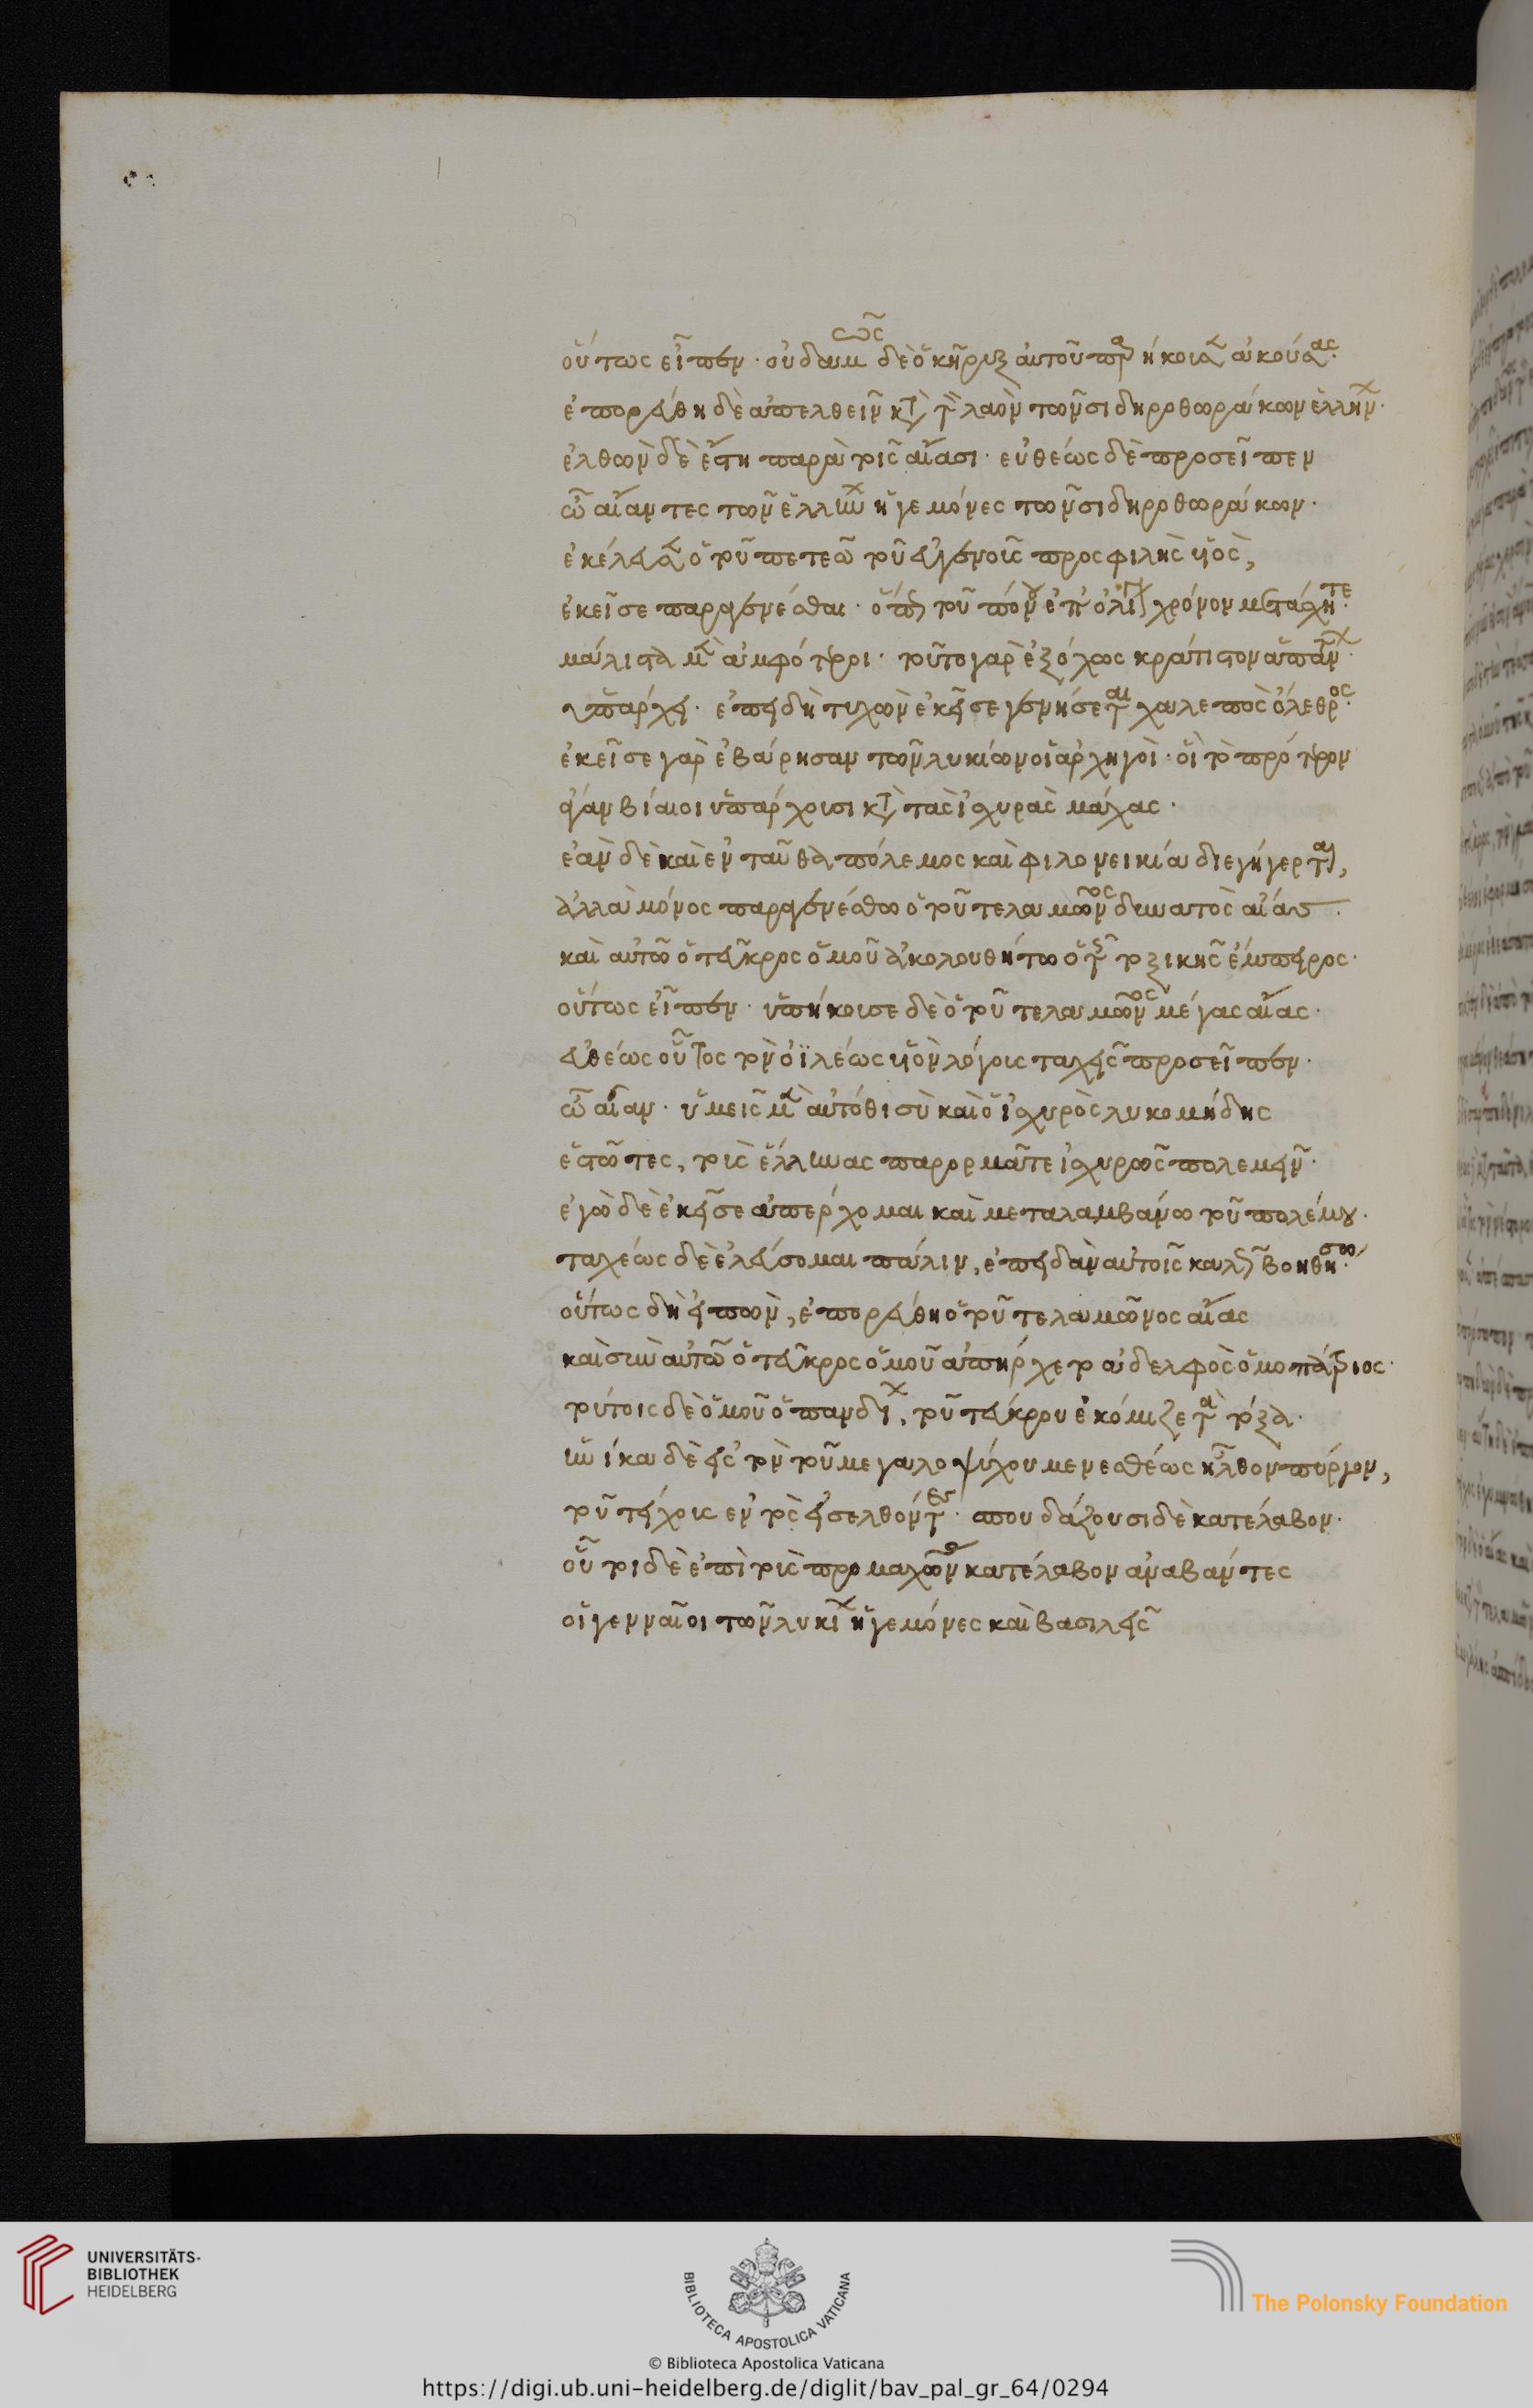 οὕτως εἶπεν· οὐδαμῶς δὲ ὁ κῆρυξ αὐτοῦ παρήκουσεν ἀκούσας·
ἐπορεύθη δὲ ἀπελθεῖν κατὰ τὸν λαὸν τῶν σιδηροθωράκων ἑλλήνων·
ἐλθὼν δὲ ἔστη παρὰ τοῖς αἴασι· εὐθέως δὲ προσεῖπεν
ὦ αἴαντες τῶν ἑλλήνων ἡγεμόνες τῶν σιδηροθωράκων·
ἐκέλευσεν ὁ τοῦ πετεῶ τοῦ εὐγενοῦς προσφιλὴς υἱὸς,
ἐκεῖσε παραγενέσθαι· ὅπως τοῦ πόνου ἐπ' ὀλίγον χρόνον μετάσχητε·
μάλιστα μὲν ἀμφότεροι· τοῦτο γὰρ ἐξόχως κράτιστον ἁπάντων·
ὑπάρχει· ἐπειδὴ τυχὸν ἐκεῖσε γενήσεται χαλεπὸς ὄλεθρος·
ἐκεῖσε γὰρ ἐβάρησαν τῶν λυκίων οἱ ἀρχηγοὶ· οἳ τὸ πρότερον
ἄγαν βίαιοι ὑπάρχουσι κατὰ τὰς ἰσχυρὰς μάχας·
ἐὰν δὲ καὶ ἐνταῦθα πόλεμος καὶ φιλονεικία διεγήγερται,
ἀλλὰ μόνος παραγενέσθω ὁ τοῦ τελαμῶνος δυνατὸς αἴας·
καὶ αὐτῶ ὁ τεῦκρος ὁμοῦ ἀκολουθήτω ὁ τῆς τοξικῆς ἔμπειρος·
οὕτως εἶπεν· ὑπήκουσε δὲ ὁ τοῦ τελαμῶνος μέγας αἴας·
εὐθέως οὗτος τὸν ὀϊλέως υἱὸν λόγοις ταχεῖς προσεῖπεν·
ὦ αἴαν· ὑμεῖς μὲν αὐτόθι σὺ καὶ ὁ ἰσχυρὸς λυκομήδης
ἑστῶτες, τοὺς ἕλληνας παρορμᾶτε ἰσχυρῶς πολεμεῖν·
ἐγὼ δὲ ἐκεῖσε ἀπέρχομαι καὶ μεταλαμβάνω τοῦ πολέμου·
ταχέως δὲ ἐλεύσομαι πάλιν, ἐπειδὰν αὐτοῖς καλῶς βοηθήσω·
οὕτως δὴ εἰπὼν, ἐπορεύθη ὁ τοῦ τελαμῶνος αἴας
καὶ σὺν αὐτῶ ὁ τεῦκρος ὁμοῦ ἀπήρχετο ἀδελφὸς ὁμοπάτριος·
τούτοις δὲ ὁμοῦ ὁ πανδίων, τοῦ τεύκρου ἐκόμιζε τὰ τόξα·
ἡνίκα δὲ εἰς τὸν τοῦ μεγαλοψύχου μενεσθέως ἦλθον πύργον,
τοῦ τείχους ἐντὸς εἰσελθόντες· σπουδάζουσι δὲ κατέλαβον·
οὗτοι δὲ ἐπὶ τοὺς προμαχῶνας κατέλαβον ἀναβάντες
οἱ γενναῖοι τῶν λυκίων ἡγεμόνες καὶ βασιλεῖς
UNIVERSITÄTS-
BIBLIOTHEK
HEIDELBERG
BIBLIOTECA APOSTOLICA VATICANA
The Polonsky Foundation
© Biblioteca Apostolica Vaticana
https://digi.ub.uni-heidelberg.de/diglit/bav_pal_gr_64/0294